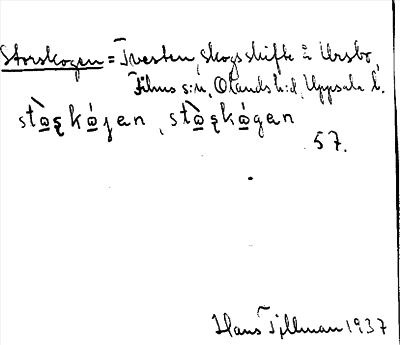 Storskogen = Tvesten, Skogsskifte å Ursbo,
Films s:n, Olands h:d, Uppsala l.
57.
Hans Tillman 1937